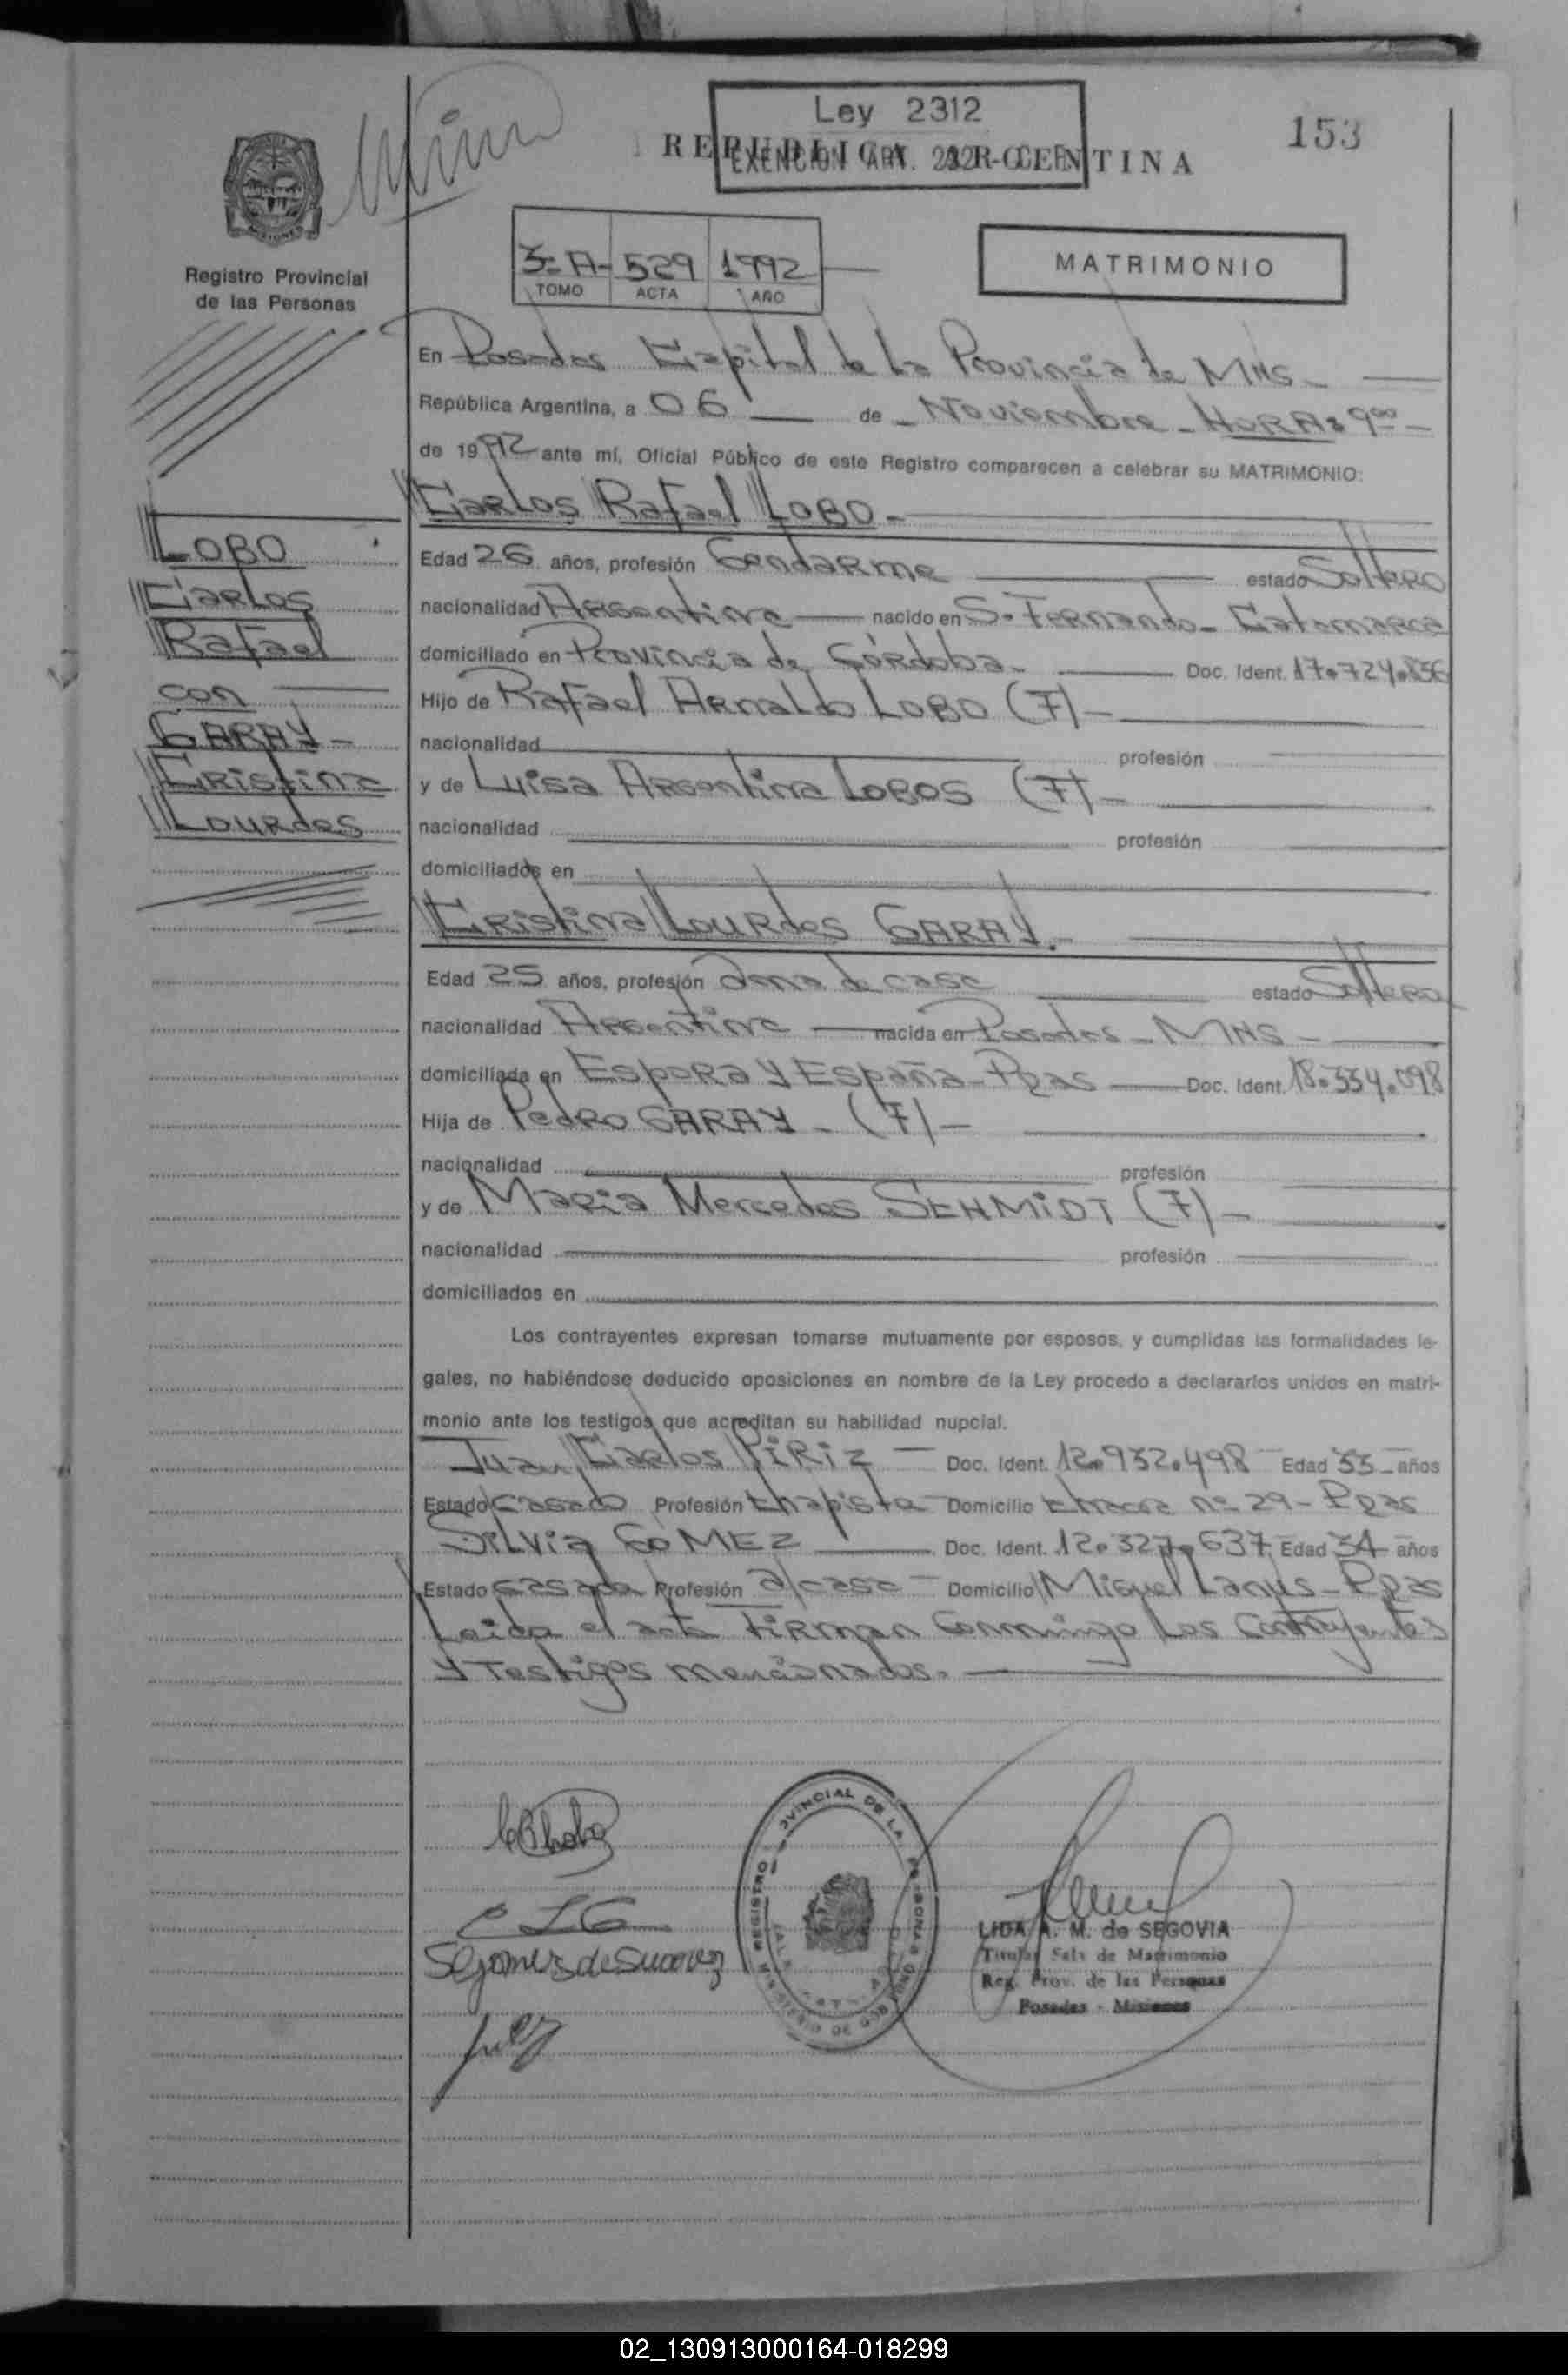 Ley 2312
REPUBLICA ARGENTINA
EXENCION ART.
153
MISIONES
Registro Provincial
de las Personas
3=A- 529 1992
TOMO ACTA AÑO
MATRIMONIO
En Posadas Capital de La Provincia de MNS-
República Argentina, a 06 de - Noviembre - HORA: 900 -
de 1992 ante mí, Oficial Público de este Registro comparecen a celebrar su MATRIMONIO:
Carlos Rafael LOBO -
LOBO
Carlos
Rafael
con
GARAY -
Cristina
Lourdes
Edad 26 años, profesión Gendarme estado Soltero
nacionalidad Argentina nacido en S. Fernando - Catamarca
domiciliado en Provincia de Córdoba - Doc. Ident. 17.724.856
Hijo de Rafael Arnaldo LOBO (7) -
nacionalidad profesión
y de Luisa Argentina LOBOS (7) -
nacionalidad profesión
domiciliados en
Cristina Lourdes GARAY. -
Edad 25 años, profesión ama de casa estado Soltera
nacionalidad Argentina nacida en Posadas - MNS -
domiciliada en Espora y España - Pdas Doc. Ident. 18.334.098
Hija de Pedro GARAY - (7) -
nacionalidad profesión
y de Maria Mercedes SCHMIDT (7) -
nacionalidad profesión
domiciliados en
Los contrayentes expresan tomarse mutuamente por esposos, y cumplidas las formalidades le-
gales, no habiéndose deducido oposiciones en nombre de la Ley procedo a declararlos unidos en matri-
monio ante los testigos que acreditan su habilidad nupcial.
Juan Carlos PIRIZ - Doc. Ident. 12.932.498 - Edad 33 - años
Estado Casado Profesión Chapista - Domicilio Chacra nº 29 - Pdas
Silvia GOMEZ Doc. Ident. 12.327.637 Edad 34 años
Estado Casada Profesión a/casa - Domicilio Miguel Lanus - Pdas
Leida el acta Firman Conmigo Los Contrayentes
y Testigos mencionados. -
SGomezdeSuarez
LIDA A. M. de SEGOVIA
Titular Sala de Matrimonio
Reg. Prov. de las Personas
Posadas - Misiones
02_130913000164-018299